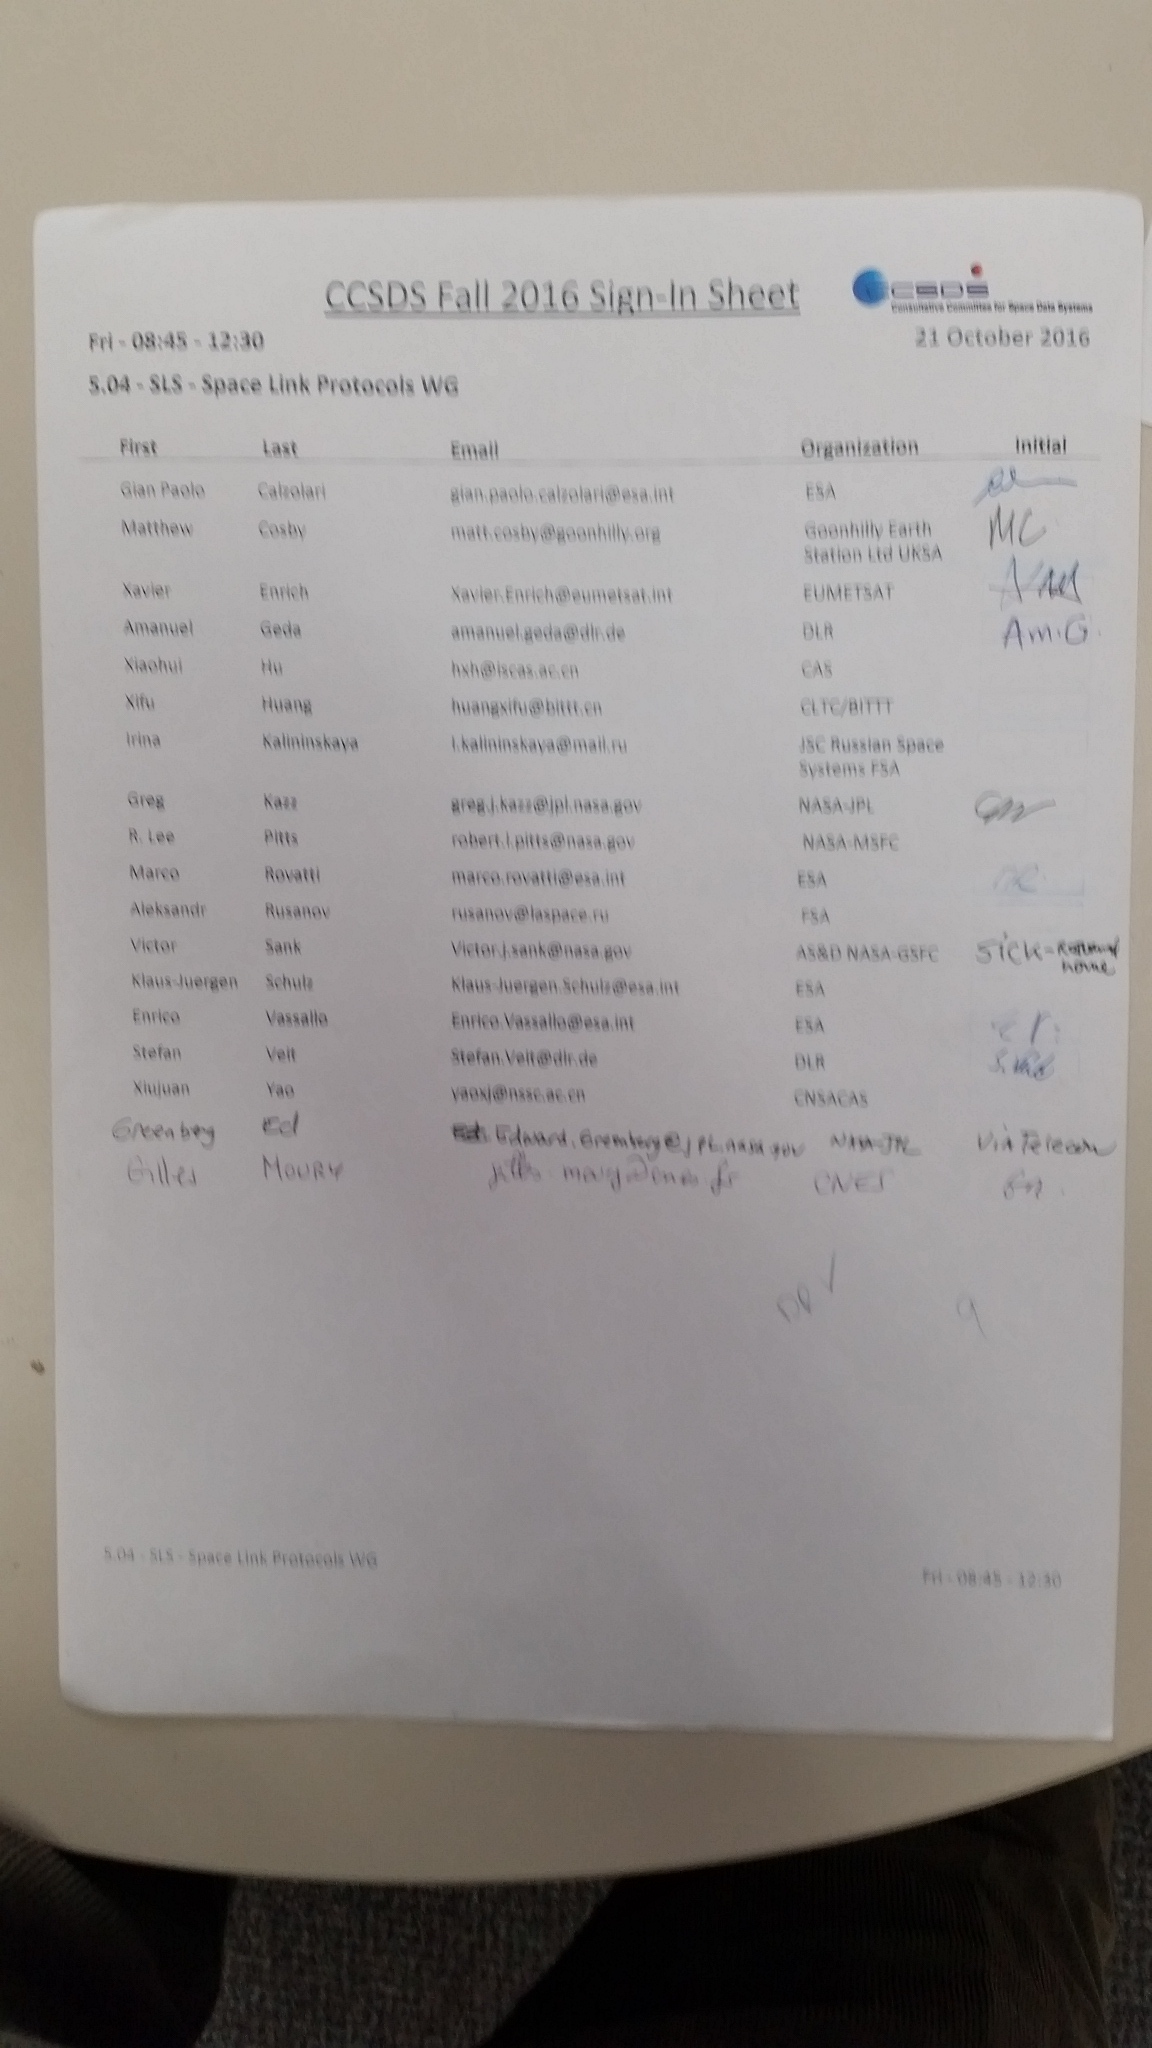 CCSDS Fall 2016 Sign-In Sheet
CCSDS
Consultative Committee for Space Data Systems
Fri - 08:45 - 12:30 21 October 2016
5.04 - SLS - Space Link Protocols WG
First Last Email Organization Initial
Gian Paolo Calzolari gian.paolo.calzolari@esa.int ESA
Matthew Cosby matt.cosby@goonhilly.org Goonhilly Earth MC
Station Ltd UKSA
Xavier Enrich Xavier.Enrich@eumetsat.int EUMETSAT
Amanuel Geda amanuel.geda@dlr.de DLR Am.G.
Xiaohui Hu hxh@iscas.ac.cn CAS
Xifu Huang huangxifu@bittt.cn CLTC/BITTT
Irina Kalininskaya i.kalininskaya@mail.ru JSC Russian Space
Systems FSA
Greg Kazz greg.j.kazz@jpl.nasa.gov NASA-JPL
R. Lee Pitts robert.l.pitts@nasa.gov NASA-MSFC
Marco Rovatti marco.rovatti@esa.int ESA
Aleksandr Rusanov rusanov@laspace.ru FSA
Victor Sank Victor.j.sank@nasa.gov AS&D NASA-GSFC SICK = Returned
home
Klaus-Juergen Schulz Klaus-Juergen.Schulz@esa.int ESA
Enrico Vassallo Enrico.Vassallo@esa.int ESA
Stefan Veit Stefan.Veit@dlr.de DLR
Xiujuan Yao yaoxj@nssc.ac.cn CNSACAS
Greenberg Ed Edward.Greenberg@jpl.nasa.gov NASA-JPL Via Telecon
Gilles MOURY CNES
5.04 - SLS - Space Link Protocols WG
Fri - 08:45 - 12:30